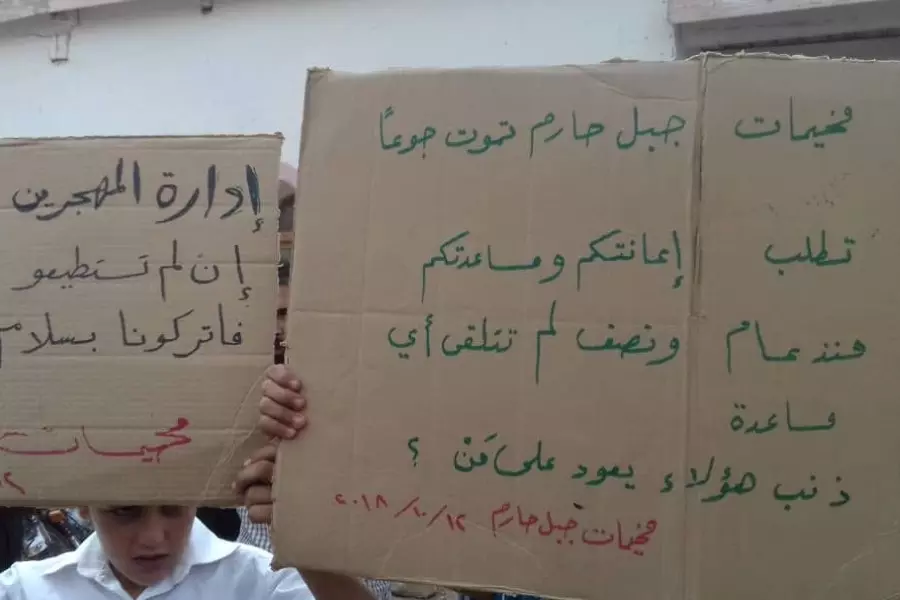 مخيمات جبل حارم تموت جوعاً
تطلب إعانتكم ومساعدتكم
منذ عام ونصف لم تتلقى أي
مساعدة
ذنب هؤلاء يعود على مَنْ ؟
مخيمات جبل حارم ٢٠١٨/١٠/١٢
إدارة المهجرين
إن لم تستطيعو
فاتركونا بسلام
مخيمات